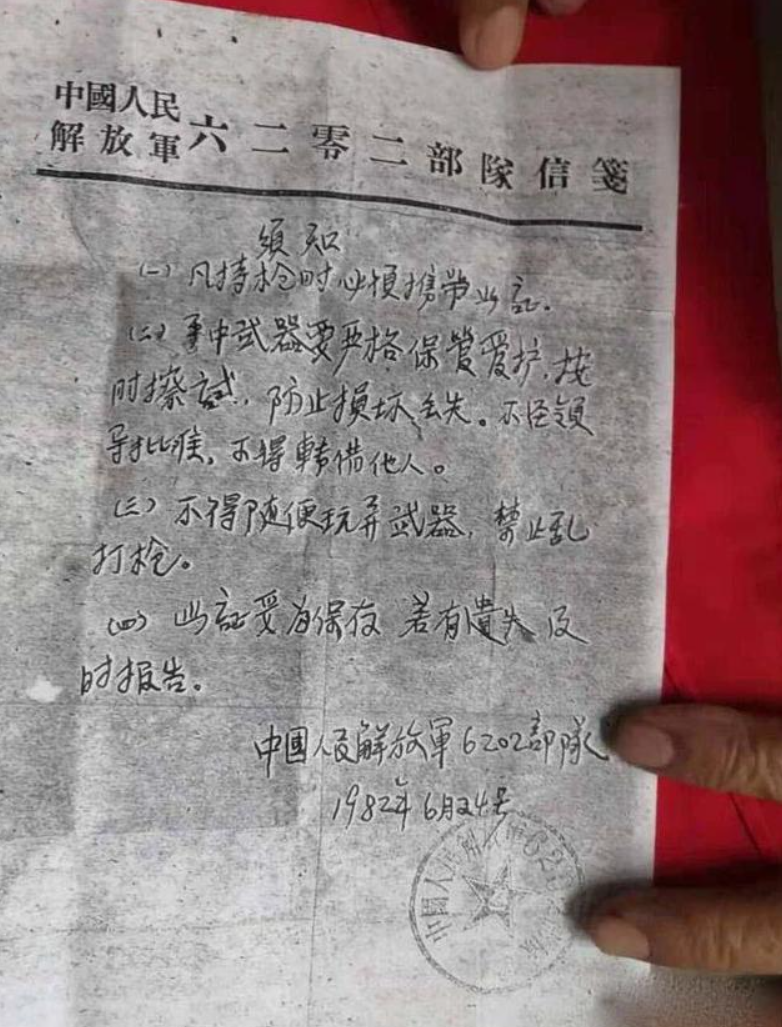 中國人民
解放軍六二零二部隊信箋
須知
(一) 凡持枪时必須携带此証.
(二) 手中武器要严格保管爱护, 按
时擦试, 防止損坏丢失。不经領
导批准, 不得轉借他人。
(三) 不得随便玩弄武器, 禁止乱
打枪。
(四) 此証妥为保存 若有遺失 及
时报告。
中國人民解放軍6202部隊
1982年6月24号
中國人民解放軍620